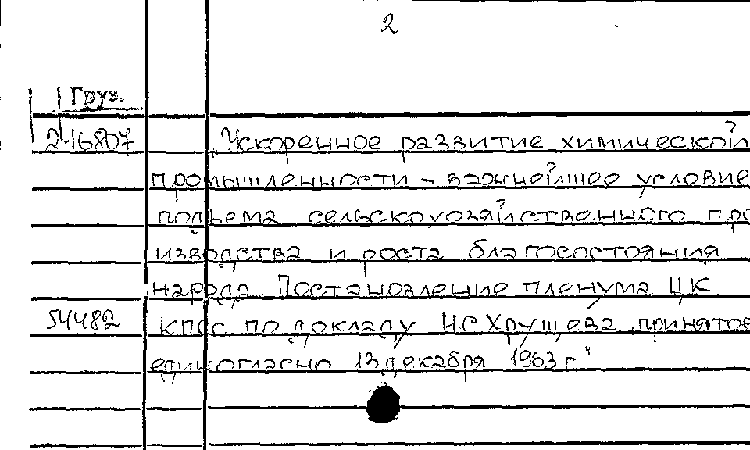 2
Груз.
2-16807 Ускоренное развитие химической
промышленности - важнейшее условие
подъема сельскохозяйственного про
изводства и роста благосостояния
народа Постановление пленума ЦК
54482 КПСС по докладу Н С Хрущева, принятое
единогласно 13 декабря 1963 г